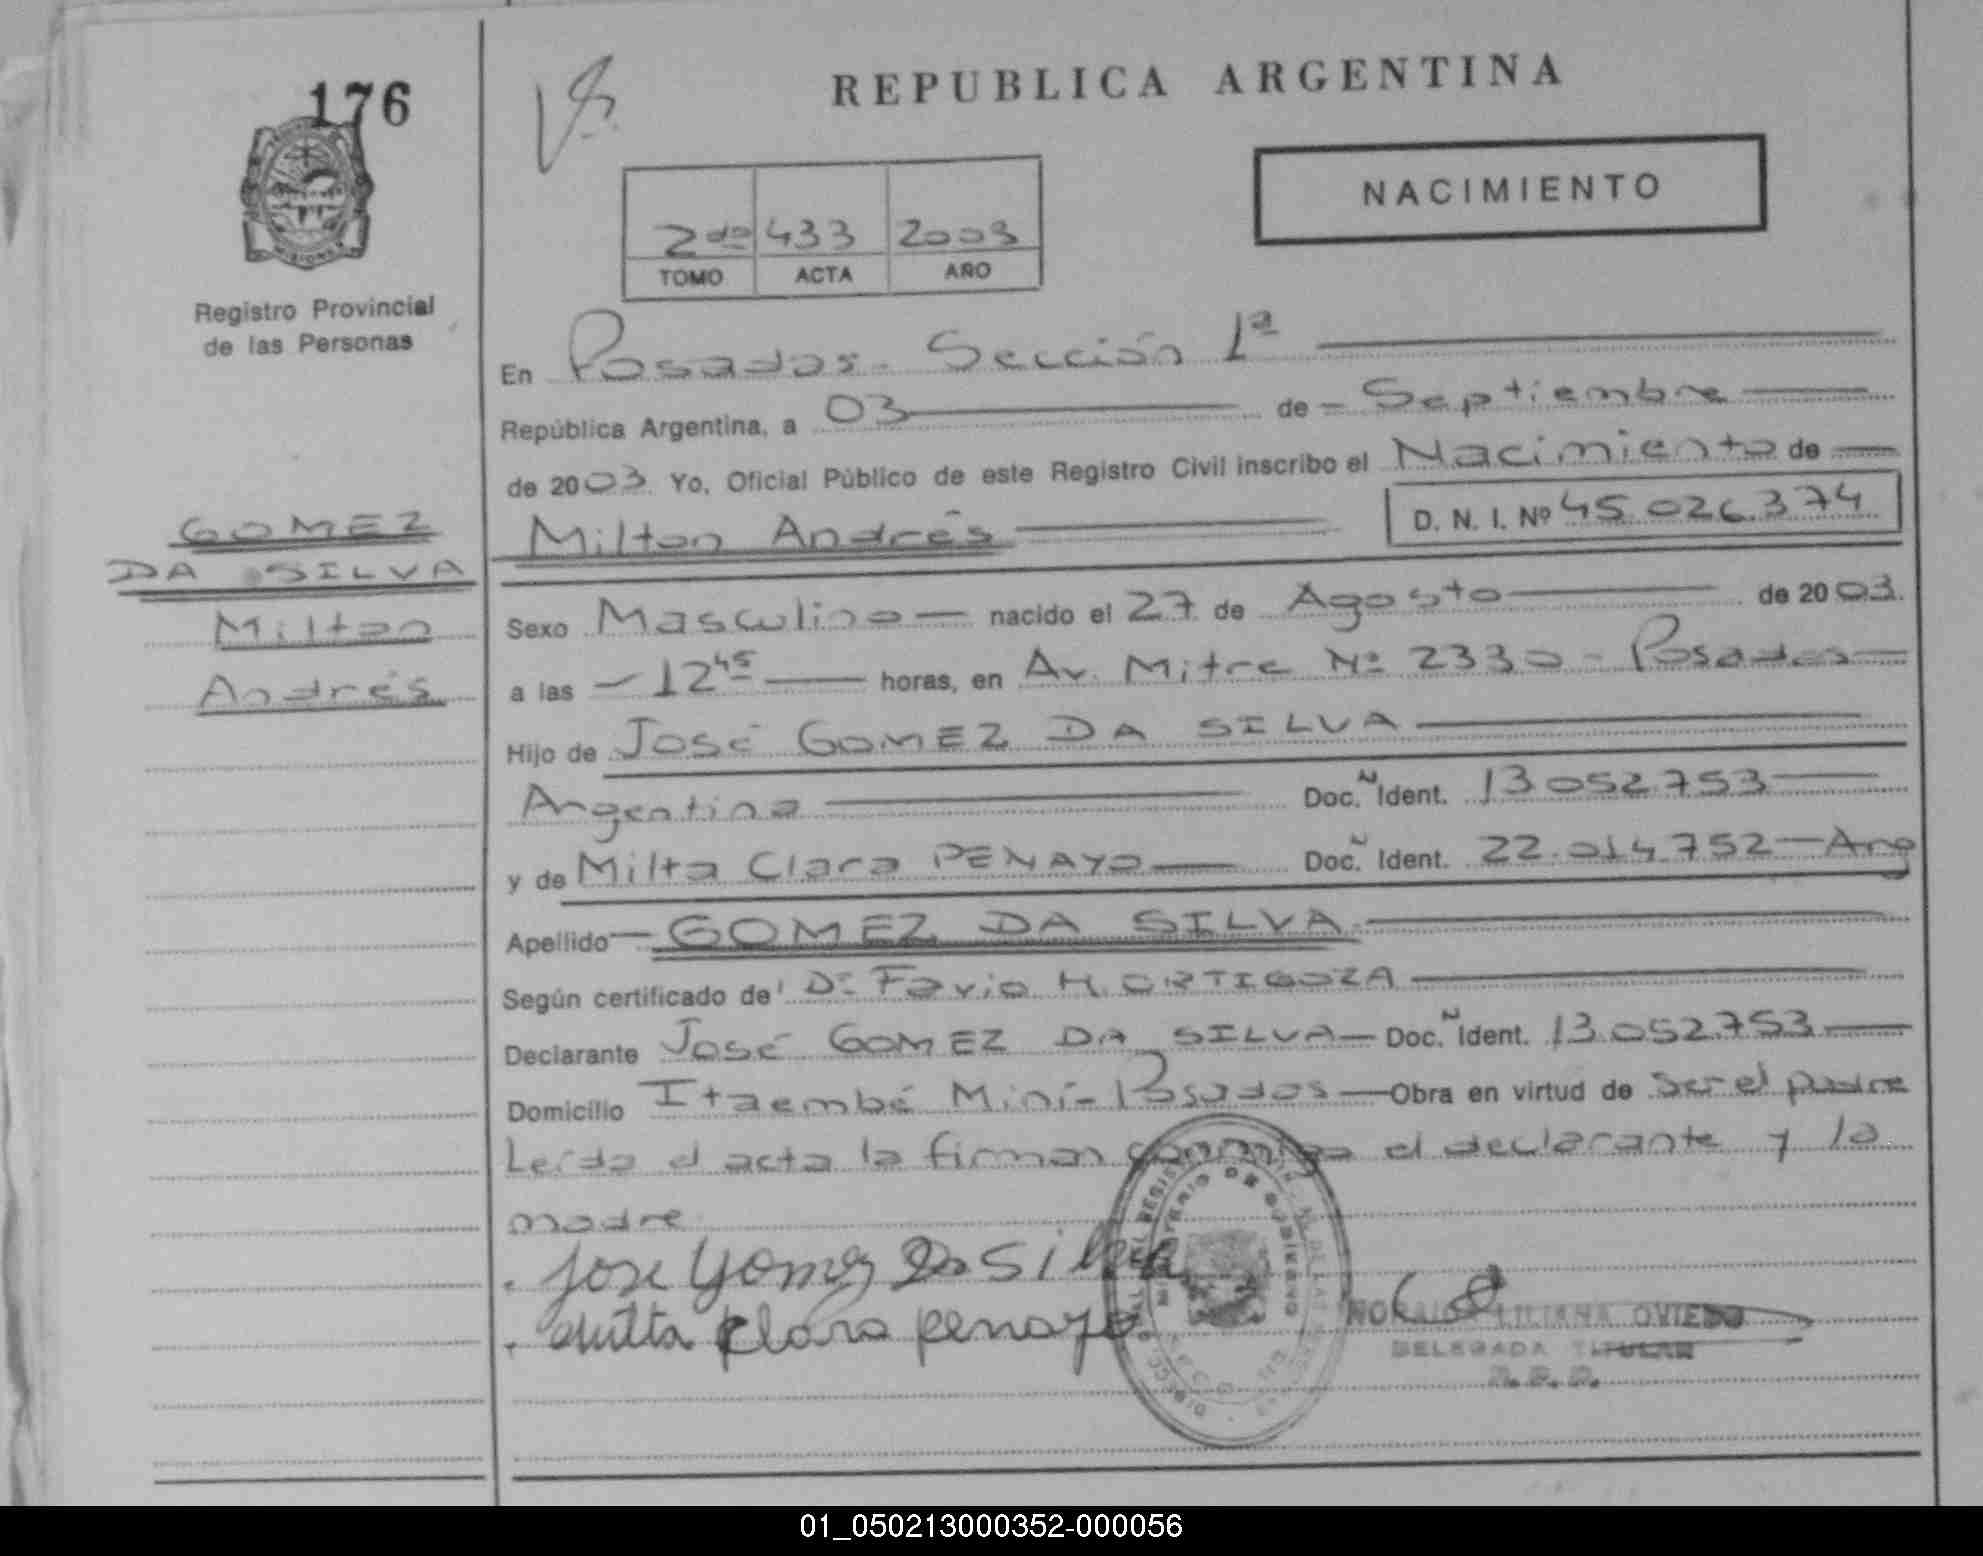 176
REPUBLICA ARGENTINA
NACIMIENTO
2do 433 2003
TOMO ACTA AÑO
MISIONES
Registro Provincial
de las Personas
En Posadas. Sección 1ª
República Argentina, a 03 de Septiembre
de 2003. Yo, Oficial Público de este Registro Civil inscribo el Nacimiento de
Milton Andrés D. N. I. Nº 45.026.374
GOMEZ
DA SILVA
Milton
Andrés
Sexo Masculino nacido el 27 de Agosto de 2003.
a las 12 45 horas, en Av. Mitre Nº 2330 - Posadas
Hijo de José GOMEZ DA SILVA
Argentina Doc. N Ident. 13.052.753
y de Milta Clara PENAYO Doc. N Ident. 22.014.752 - Arg
Apellido GOMEZ DA SILVA
Según certificado de Dr Favio H. ORTIGOZA
Declarante José GOMEZ DA SILVA Doc. N Ident. 13.052.753
Domicilio Itaembé Miní - Posadas Obra en virtud de ser el padre
Leída el acta la firman conmigo el declarante y la
madre
Jose Gomez Da Silva
Milta Clara Penayo
MINISTERIO DE GOBIERNO
LILIANA OVIEDO
DELEGADA TITULAR
01_050213000352-000056